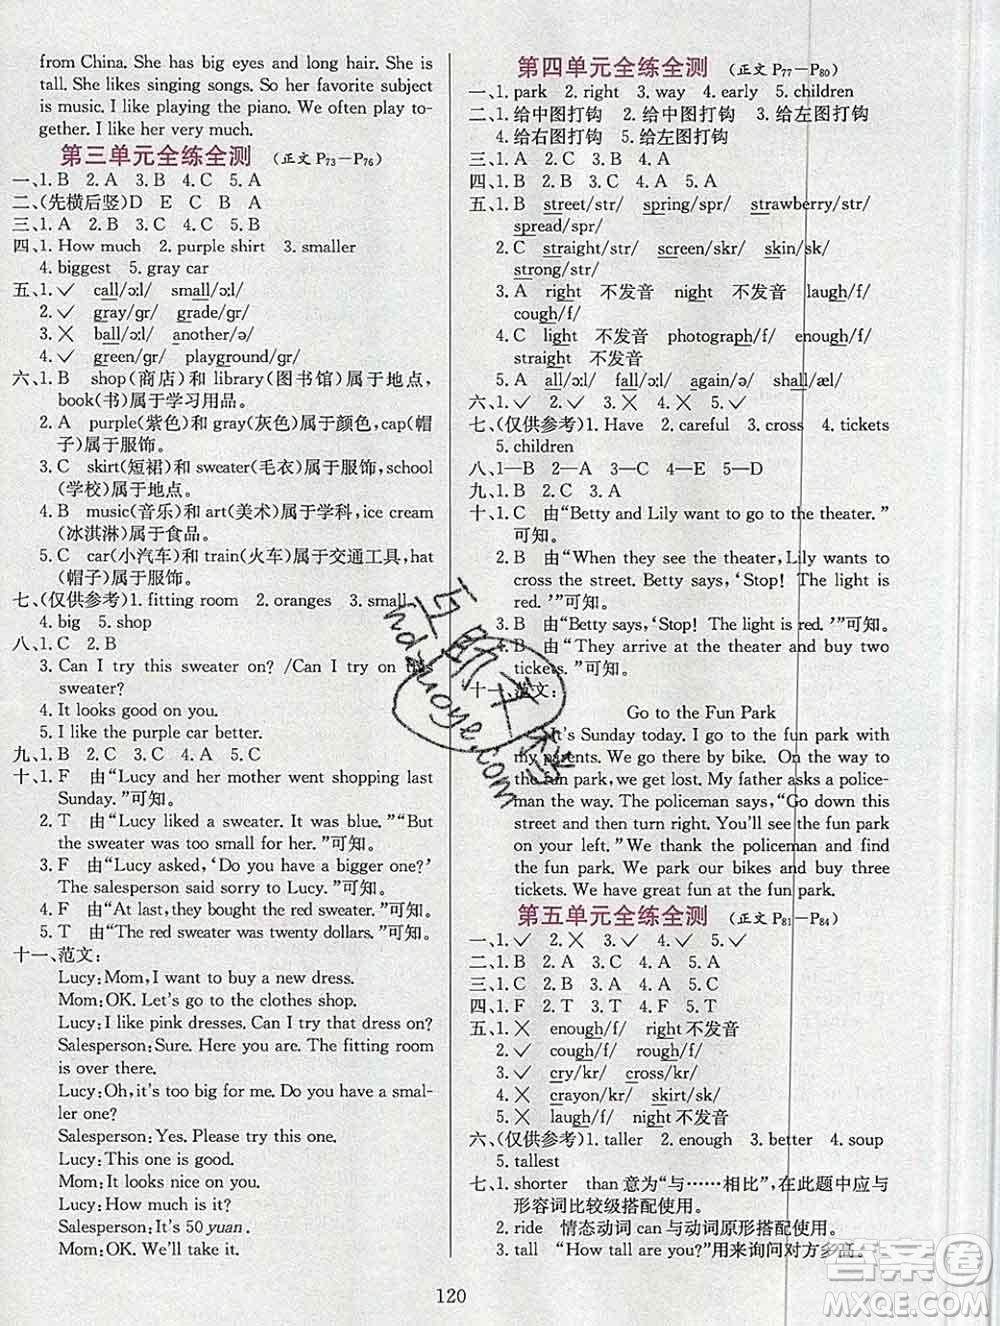 from China. She has big eyes and long hair. She is
tall. She likes singing songs. So her favorite subject
is music. I like playing the piano. We often play to-
gether. I like her very much.
第三单元全练全测 (正文 P73—P76)
一、1. B 2. A 3. B 4. C 5. A
二、(先横后竖)D E C B A
三、1. A 2. B 3. C 4. B 5. A
四、1. How much 2. purple shirt 3. smaller
4. biggest 5. gray car
五、1. ✓ call/ɔ:l/ small/ɔ:l/
2. ✓ gray/gr/ grade/gr/
3. ✕ ball/ɔ:l/ another/ə/
4. ✓ green/gr/ playground/gr/
六、1. B shop(商店)和 library(图书馆)属于地点,
book(书)属于学习用品。
2. A purple(紫色)和 gray(灰色)属于颜色,cap(帽
子)属于服饰。
3. C skirt(短裙)和 sweater(毛衣)属于服饰,school
(学校)属于地点。
4. B music(音乐)和 art(美术)属于学科,ice cream
(冰淇淋)属于食品。
5. C car(小汽车)和 train(火车)属于交通工具,hat
(帽子)属于服饰。
七、(仅供参考)1. fitting room 2. oranges 3. small
4. big 5. shop
八、1. C 2. B
3. Can I try this sweater on? /Can I try on this
sweater?
4. It looks good on you.
5. I like the purple car better.
九、1. B 2. B 3. C 4. A 5. C
十、1. F 由“Lucy and her mother went shopping last
Sunday.”可知。
2. T 由“Lucy liked a sweater. It was blue.”“But
the sweater was too small for her.”可知。
3. F 由“Lucy asked,‘Do you have a bigger one?’
The salesperson said sorry to Lucy.”可知。
4. F 由“At last, they bought the red sweater.”可知。
5. T 由“The red sweater was twenty dollars.”可知。
十一、范文:
Lucy: Mom, I want to buy a new dress.
Mom: OK. Let's go to the clothes shop.
Lucy: I like pink dresses. Can I try that dress on?
Salesperson: Sure. Here you are. The fitting room
is over there.
Lucy: Oh, it's too big for me. Do you have a smal-
ler one?
Salesperson: Yes. Please try this one.
Lucy: This one is good.
Mom: It looks nice on you.
Lucy: How much is it?
Salesperson: It's 50 yuan.
Mom: OK. We'll take it.
第四单元全练全测 (正文 P77—P80)
一、1. park 2. right 3. way 4. early 5. children
二、1. 给中图打钩 2. 给中图打钩 3. 给左图打钩
4. 给右图打钩 5. 给左图打钩
三、1. C 2. A 3. B 4. C 5. A
四、1. B 2. A 3. B 4. A 5. C
五、1. B street/str/ spring/spr/ strawberry/str/
spread/spr/
2. C straight/str/ screen/skr/ skin/sk/
strong/str/
3. A right 不发音 night 不发音 laugh/f/
cough/f/
4. C light 不发音 photograph/f/ enough/f/
straight 不发音
5. A all/ɔ:l/ fall/ɔ:l/ again/ə/ shall/æl/
六、1. ✓ 2. ✓ 3. ✕ 4. ✕ 5. ✓
七、(仅供参考)1. Have 2. careful 3. cross 4. tickets
5. children
八、1—B 2—A 3—C 4—E 5—D
九、1. B 2. B 3. A 4. B 5. B
十、1. C 由“Betty and Lily want to go to the theater.”
可知。
2. B 由“When they see the theater, Lily wants to
cross the street. Betty says,‘Stop! The light is
red.’”可知。
3. B 由“Betty says,‘Stop! The light is red.’”可知。
4. B 由“They arrive at the theater and buy two
tickets.”可知。
十一、范文:
Go to the Fun Park
It's Sunday today. I go to the fun park with
my parents. We go there by bike. On the way to
the fun park, we get lost. My father asks a police-
man the way. The policeman says, “Go down this
street and then turn right. You'll see the fun park
on your left.” We thank the policeman and find
the fun park. We park our bikes and buy three
tickets. We have great fun at the fun park.
第五单元全练全测 (正文 P81—P84)
一、1. ✓ 2. ✕ 3. ✓ 4. ✓ 5. ✓
二、1. B 2. A 3. C 4. A 5. B
三、1. C 2. B 3. A 4. C 5. A
四、1. F 2. T 3. T 4. F 5. T
五、1. ✕ enough/f/ right 不发音
2. ✓ cough/f/ rough/f/
3. ✓ cry/kr/ cross/kr/
4. ✕ crayon/kr/ skirt/sk/
5. ✕ laugh/f/ night 不发音
六、(仅供参考)1. taller 2. enough 3. better 4. soup
5. tallest
七、1. shorter than 意为“与……相比”,在此题中应与
形容词比较级搭配使用。
2. ride 情态动词 can 与动词原形搭配使用。
3. tall “How tall are you?”用来询问对方多高。
120
hdzuoye.com
答案圈
MXQE.COM